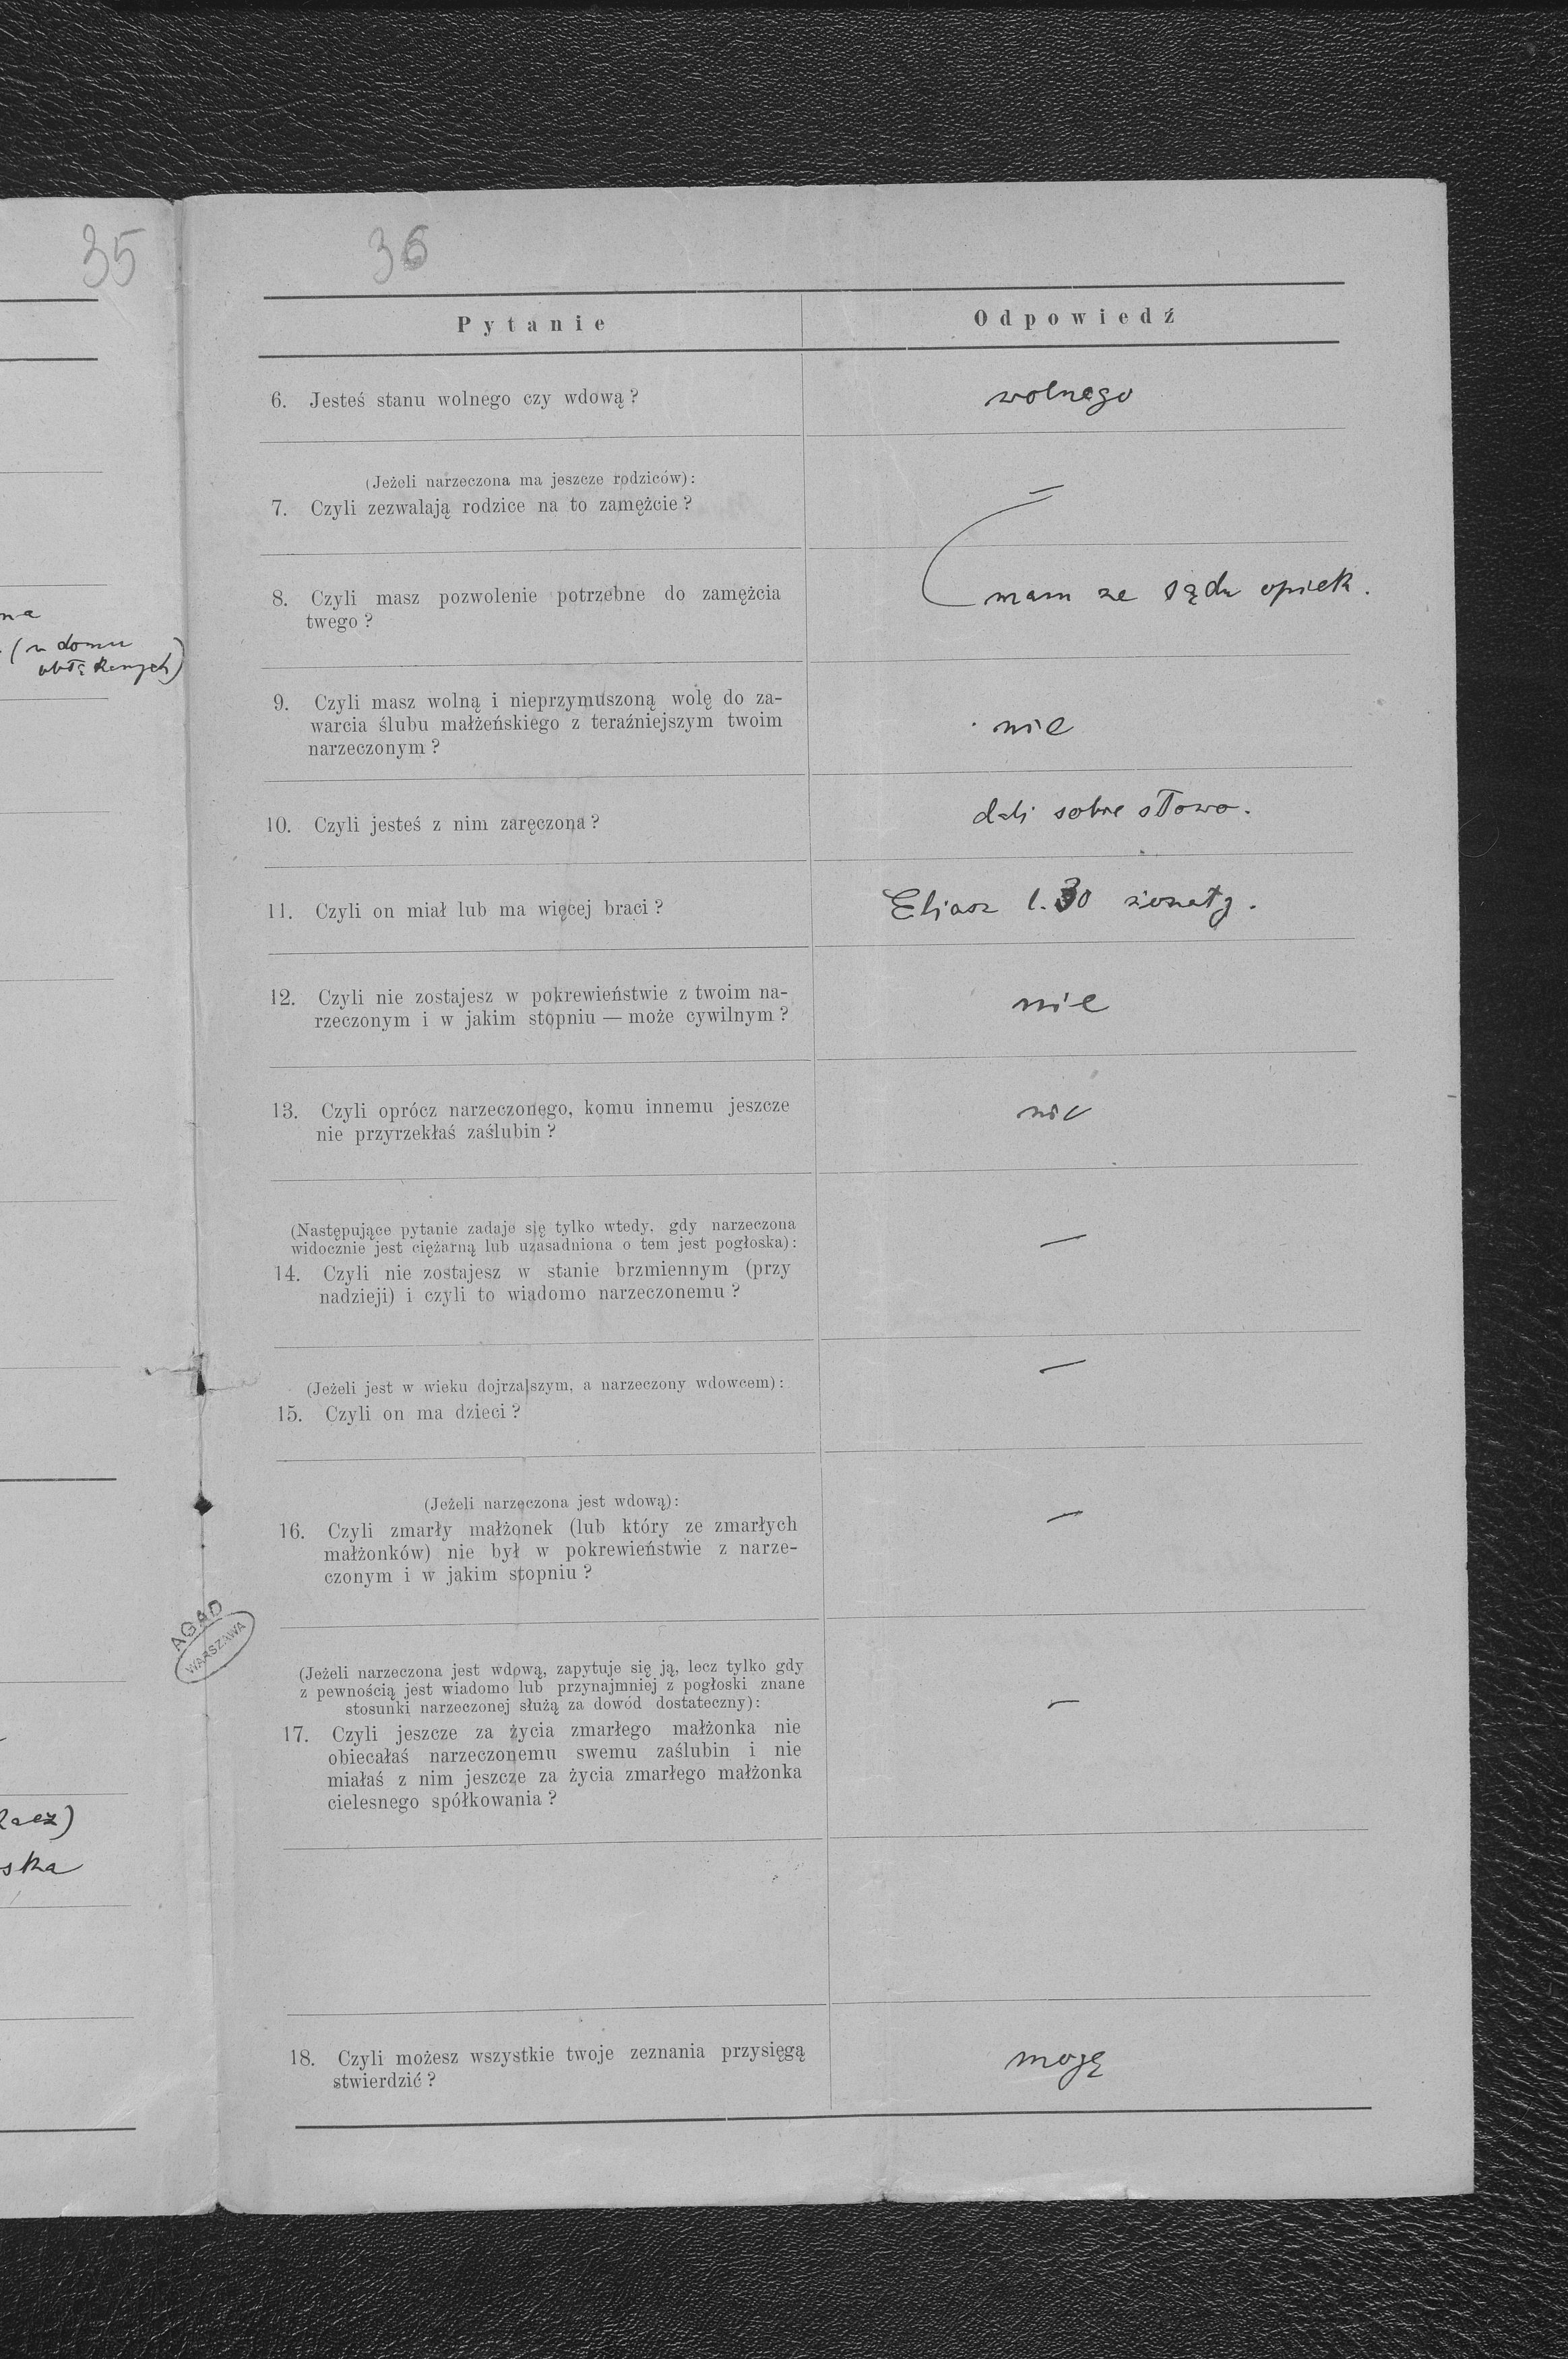 35
36
Pytanie
Odpowiedź
6. Jesteś stanu wolnego czy wdową?
wolnego
(Jeżeli narzeczona ma jeszcze rodziców):
7. Czyli zezwalają rodzice na to zamężcie?
=
8. Czyli masz pozwolenie potrzebne do zamężcia
twego?
mam ze sądu opiek.
9. Czyli masz wolną i nieprzymuszoną wolę do za-
warcia ślubu małżeńskiego z teraźniejszym twoim
narzeczonym?
nie
10. Czyli jesteś z nim zaręczona?
dali sobie słowo.
11. Czyli on miał lub ma więcej braci?
Eliasz l. 30 żonaty.
12. Czyli nie zostajesz w pokrewieństwie z twoim na-
rzeczonym i w jakim stopniu — może cywilnym?
nie
13. Czyli oprócz narzeczonego, komu innemu jeszcze
nie przyrzekłaś zaślubin?
nie
(Następujące pytanie zadaje się tylko wtedy, gdy narzeczona
widocznie jest ciężarną lub uzasadniona o tem jest pogłoska):
14. Czyli nie zostajesz w stanie brzmiennym (przy
nadzieji) i czyli to wiadomo narzeczonemu?
—
(Jeżeli jest w wieku dojrzalszym, a narzeczony wdowcem):
15. Czyli on ma dzieci?
—
(Jeżeli narzeczona jest wdową):
16. Czyli zmarły małżonek (lub który ze zmarłych
małżonków) nie był w pokrewieństwie z narze-
czonym i w jakim stopniu?
—
(Jeżeli narzeczona jest wdową, zapytuje się ją, lecz tylko gdy
z pewnością jest wiadomo lub przynajmniej z pogłoski znane
stosunki narzeczonej służą za dowód dostateczny):
17. Czyli jeszcze za życia zmarłego małżonka nie
obiecałaś narzeczonemu swemu zaślubin i nie
miałaś z nim jeszcze za życia zmarłego małżonka
cielesnego spółkowania?
—
18. Czyli możesz wszystkie twoje zeznania przysięgą
stwierdzić?
mogę
(w domu
obłąkanych)
ska
AGAD
WARSZAWA